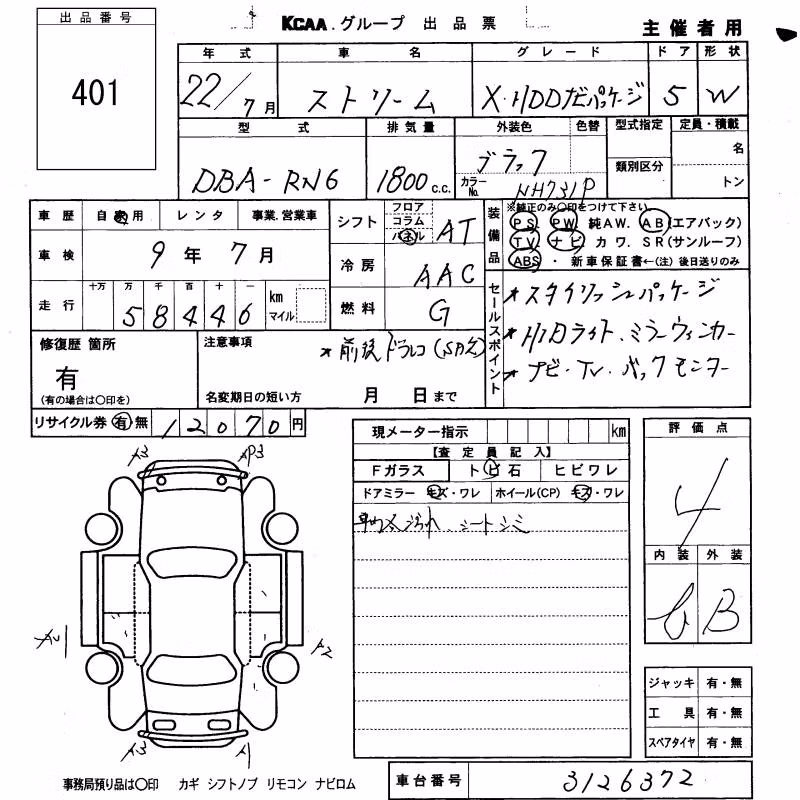 出品番号
401
KCAA.グループ 出品票
主催者用
年式 車名 グレード ドア 形状
22/7月 ストリーム X・HDDナビパッケージ 5 W
型式 排気量 外装色 色替 型式指定 定員・積載
DBA-RN6 1800c.c. ブラック 類別区分 名
カラーNo. NH731P トン
車歴 自家用 レンタ 事業.営業車
シフト フロア コラム パネル AT
装備品 ※純正のみ〇印をつけて下さい
PS. PW. 純AW. AB(エアバック)
TV ナビ カワ. SR(サンルーフ)
ABS ・ 新車保証書←(注) 後日送りのみ
車検 9年7月
冷房 AAC
走行 十万 万 千 百 十 一 km マイル
58446
燃料 G
セールスポイント
★スタイリッシュパッケージ
★HIDライト.ミラーウィンカー
★ナビ・TV.バックモニター
修復歴 箇所
有
(有の場合は〇印を)
注意事項
★前後ドラレコ
名変期日の短い方 月 日まで
リサイクル券 有 無 12070円
現メーター指示 km
【査定員記入】
Fガラス トビ石 ヒビワレ
ドアミラー キズ・ワレ ホイール(CP) キズ・ワレ
シートシミ
評価点
4
内装 外装
B
A3 AP3
A2
A3 A1
ジャッキ 有・無
工具 有・無
スペアタイヤ 有・無
事務局預り品は〇印 カギ シフトノブ リモコン ナビロム
車台番号 3126372